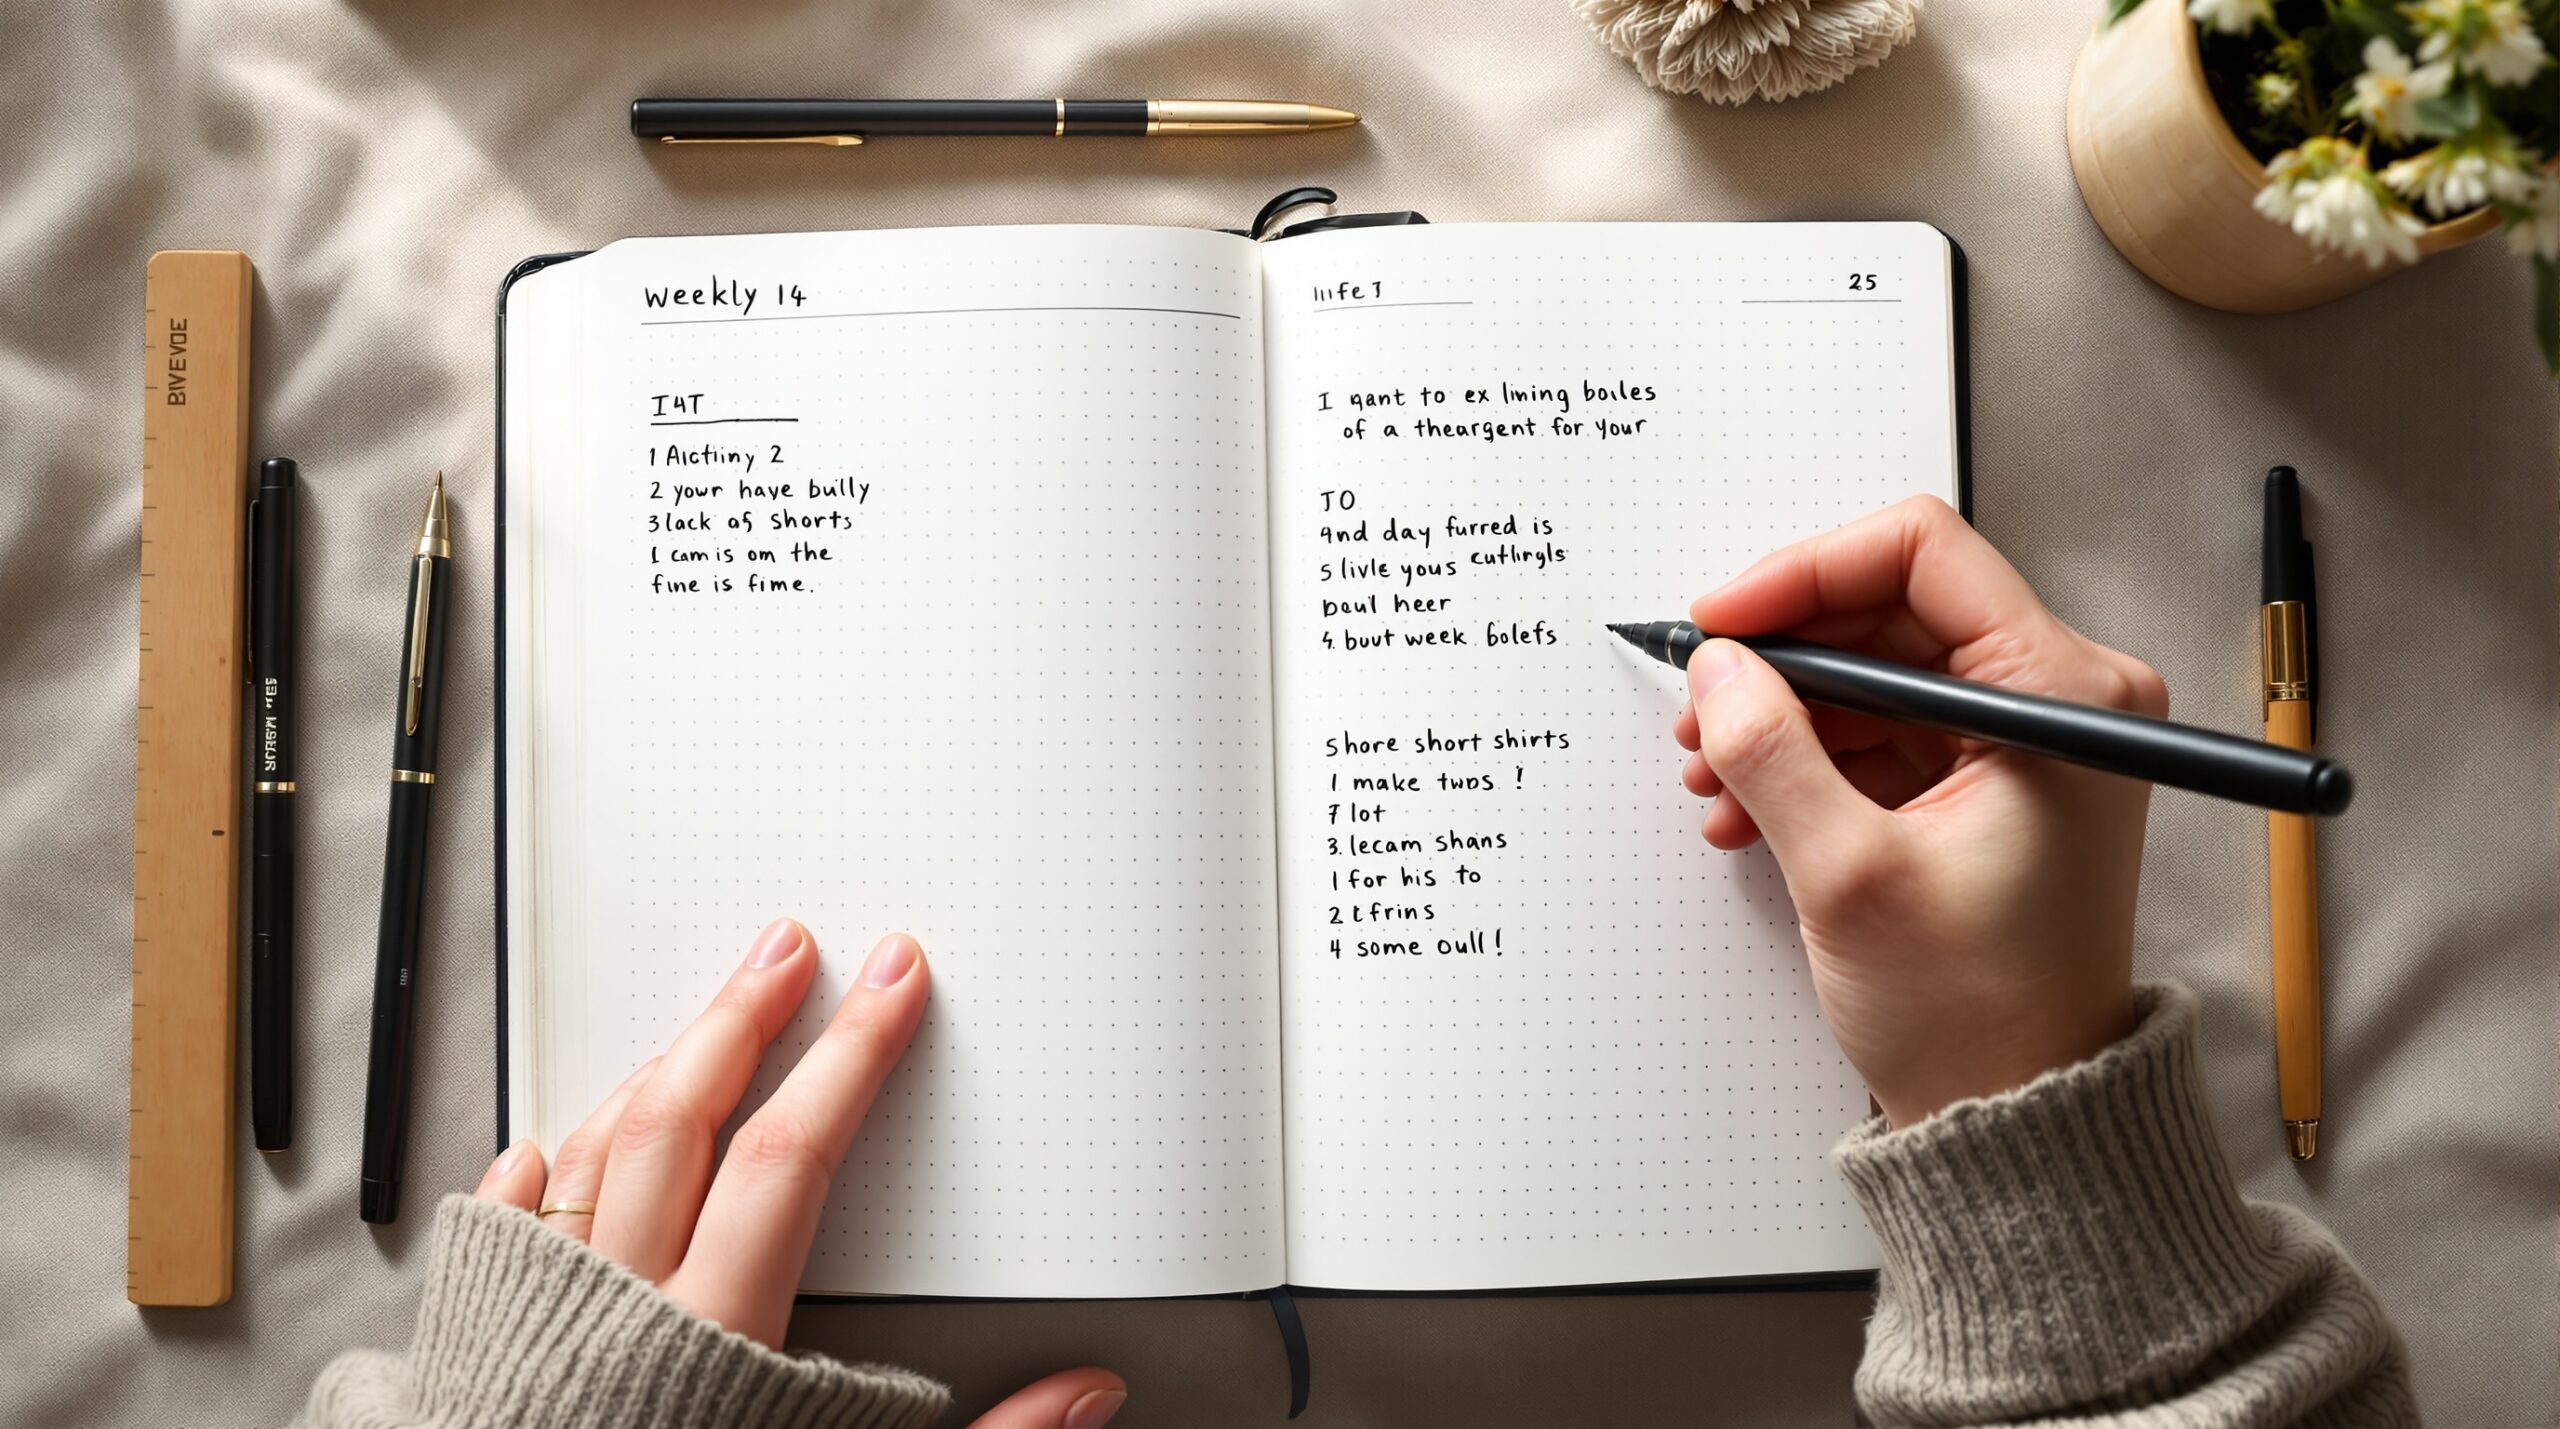 Weekly 14
I4T
1 Aictiiny 2
2 your have bully
3 lack of shorts
1 cam is om the
fine is fime.
25
I qant to ex lining boiles
of a theargent for your
JO
and day furred is
5 livle yous cutlingls
baul heer
4. buut week bolefs
Shore short shirts
1 make twos !
7 lot
3. lecam shans
1 for his to
2 t frins
4 some oull!
BIVEVOE